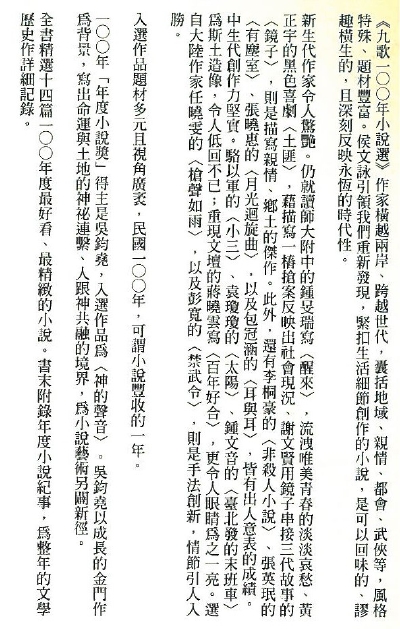 《九歌一〇〇年小說選》作家橫越兩岸、跨越世代，囊括地域、親情、都會、武俠等，風格
特殊、題材豐富。侯文詠引領我們重新發現，緊扣生活細節創作的小說，是可以回味的、謬
趣橫生的，且深刻反映永恆的時代性。
新生代作家令人驚艷。仍就讀師大附中的鍾旻瑞寫〈醒來〉，流洩唯美青春的淡淡哀愁、黃
正宇的黑色喜劇〈土匪〉，藉描寫一樁搶案反映出社會現況、謝文賢用鏡子串接三代故事的
〈鏡子〉，則是描寫親情、鄉土的傑作。此外，還有李桐豪的〈非殺人小說〉、張英珉的
〈有塵室〉、張曉惠的〈月光迴旋曲〉，以及包冠涵的〈耳與耳〉，皆有出人意表的成績。
中生代創作力堅實。駱以軍的〈小三〉、袁瓊瓊的〈太陽〉、鍾文音的〈臺北發的末班車〉
為斯土造像，令人低回不已；重現文壇的蔣曉雲寫〈百年好合〉，更令人眼睛為之一亮。選
自大陸作家任曉雯的〈槍聲如雨〉，以及彭寬的〈禁武令〉，則是手法創新，情節引人入
勝。
入選作品題材多元且視角廣袤，民國一〇〇年，可謂小說豐收的一年。
一〇〇年「年度小說獎」得主是吳鈞堯，入選作品為〈神的聲音〉。吳鈞堯以成長的金門作
為背景，寫出命運與土地的神祕連繫、人跟神共融的境界，為小說藝術另闢新徑。
全書精選十四篇一〇〇年度最好看、最精緻的小說。書末附錄年度小說紀事，為整年的文學
歷史作詳細記錄。